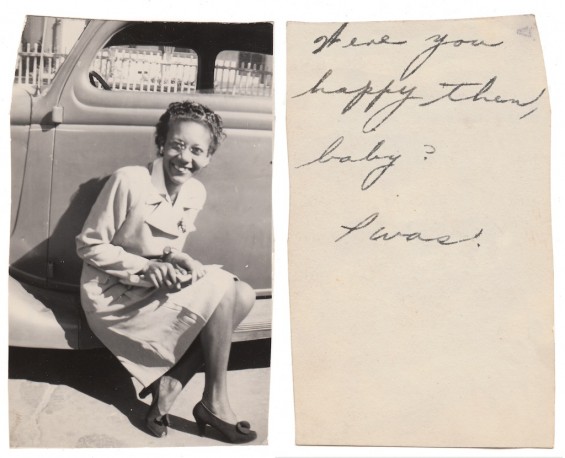 Were you
happy then,
baby?
I was.